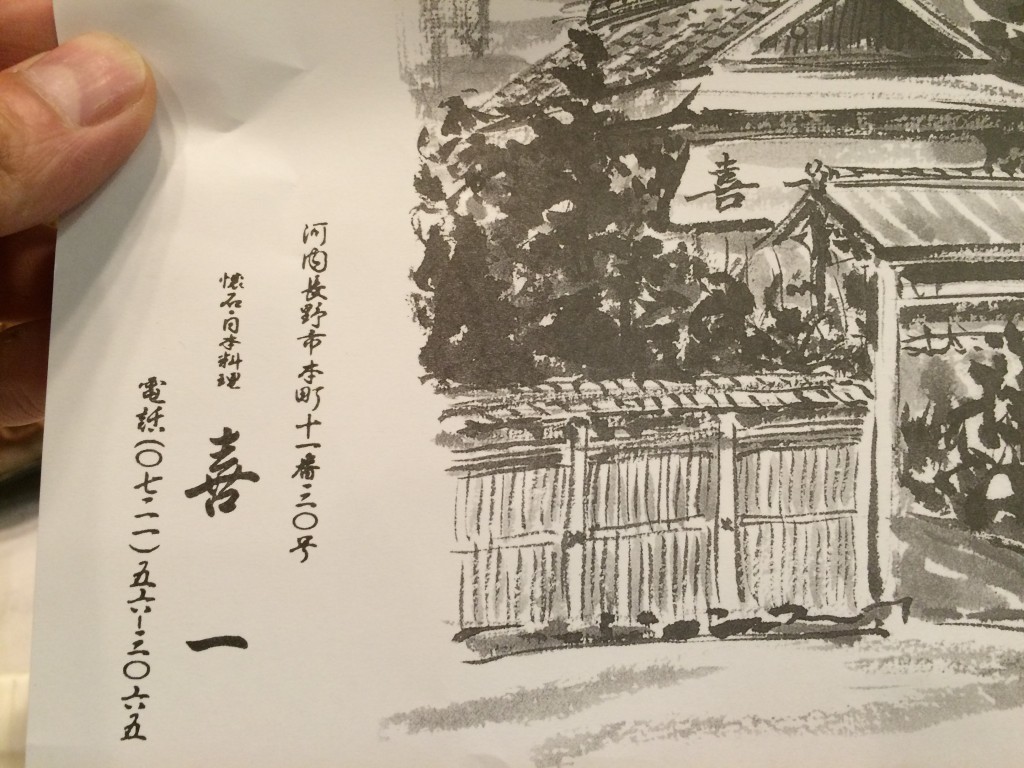 喜
河内長野市本町十一番二〇号
懐石・日本料理 喜一
電話(〇七二一)五六ー三〇六五